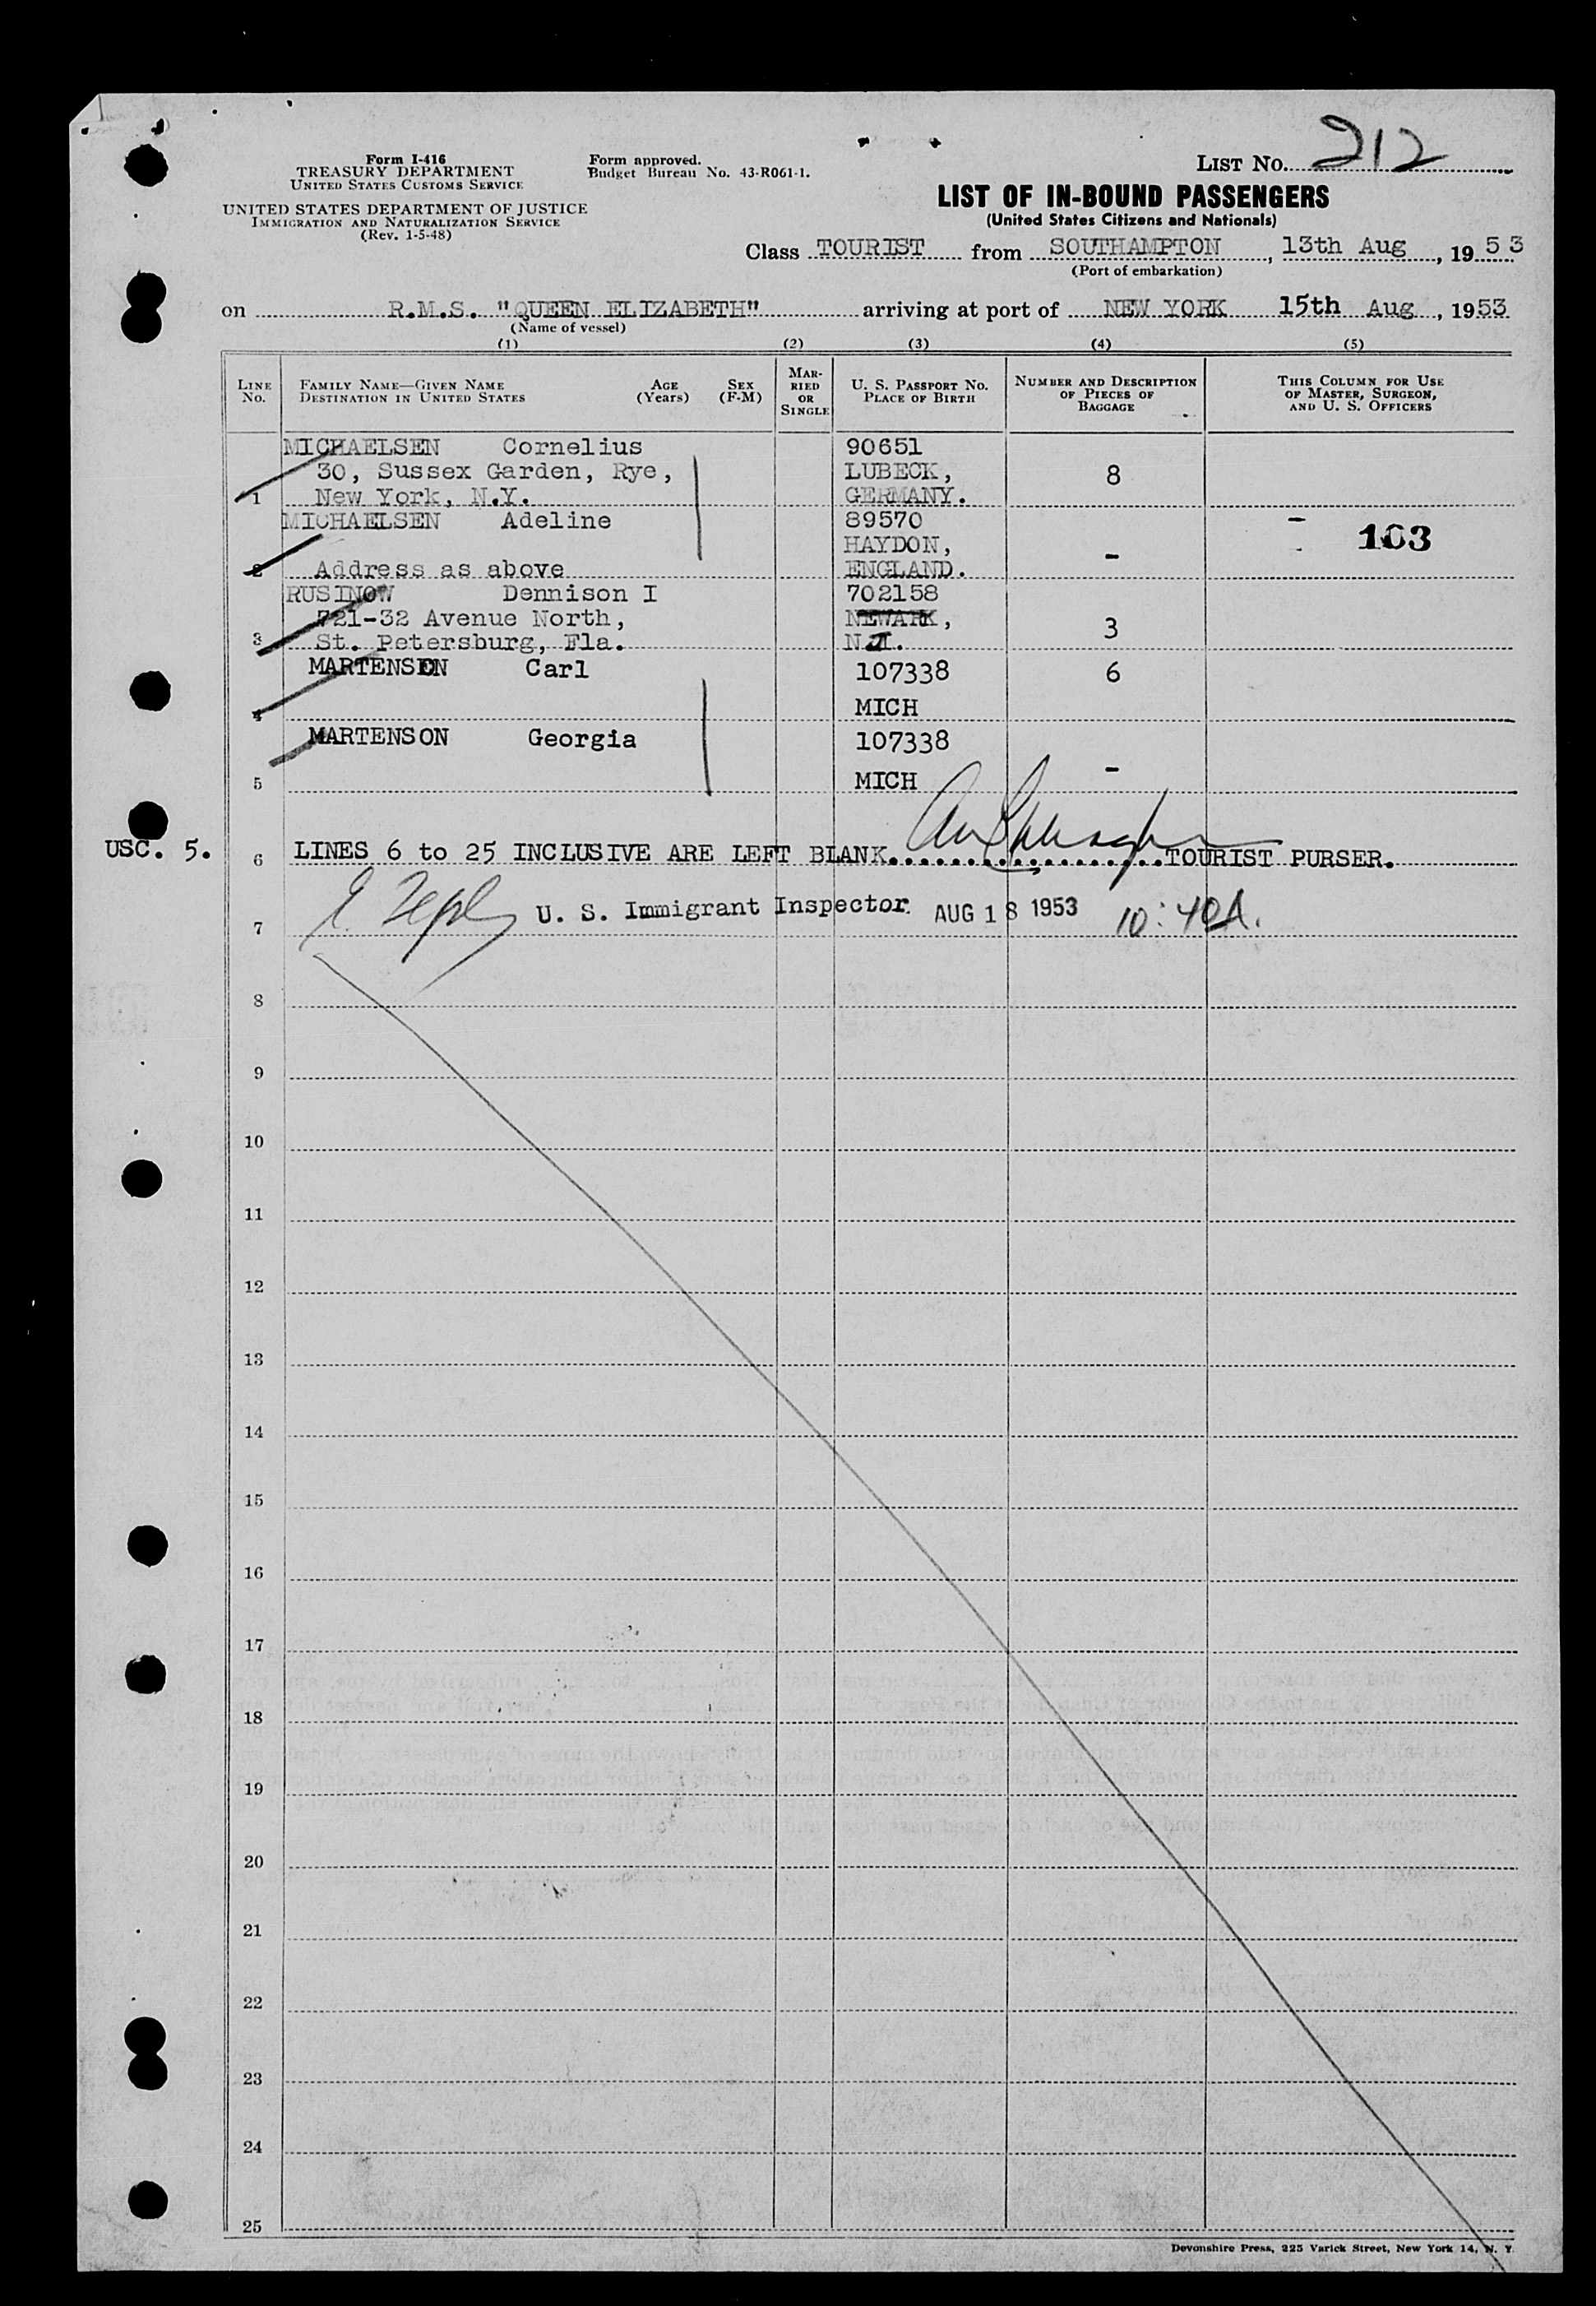 Form I-416
TREASURY DEPARTMENT
UNITED STATES CUSTOMS SERVICE
UNITED STATES DEPARTMENT OF JUSTICE
IMMIGRATION AND NATURALIZATION SERVICE
(Rev. 1-5-48)
Form approved.
Budget Bureau No. 43-R061-1.
LIST No. 212
LIST OF IN-BOUND PASSENGERS
(United States Citizens and Nationals)
Class TOURIST from SOUTHAMPTON, 13th Aug, 1953
(Port of embarkation)
on R.M.S. "QUEEN ELIZABETH" arriving at port of NEW YORK 15th Aug, 1953
(Name of vessel)
(1) (2) (3) (4) (5)
LINE No. FAMILY NAME—GIVEN NAME DESTINATION IN UNITED STATES AGE (Years) SEX (F-M) MARRIED OR SINGLE U. S. PASSPORT NO. PLACE OF BIRTH NUMBER AND DESCRIPTION OF PIECES OF BAGGAGE THIS COLUMN FOR USE OF MASTER, SURGEON, AND U. S. OFFICERS
MICHAELSEN Cornelius 90651
30, Sussex Garden, Rye, LUBECK, 8
1 New York, N.Y. GERMANY.
MICHAELSEN Adeline 89570
HAYDON, - 103
2 Address as above ENGLAND.
RUSINOW Dennison I 702158
721-32 Avenue North, NEWARK, 3
3 St. Petersburg, Fla. N.J.
MARTENSON Carl 107338 6
4 MICH
MARTENSON Georgia 107338
5 MICH -
USC. 5. 6 LINES 6 to 25 INCLUSIVE ARE LEFT BLANK. TOURIST PURSER.
7 U. S. Immigrant Inspector. AUG 18 1953 10:40A.
8
9
10
11
12
13
14
15
16
17
18
19
20
21
22
23
24
25
Devonshire Press, 225 Varick Street, New York 14, N. Y.